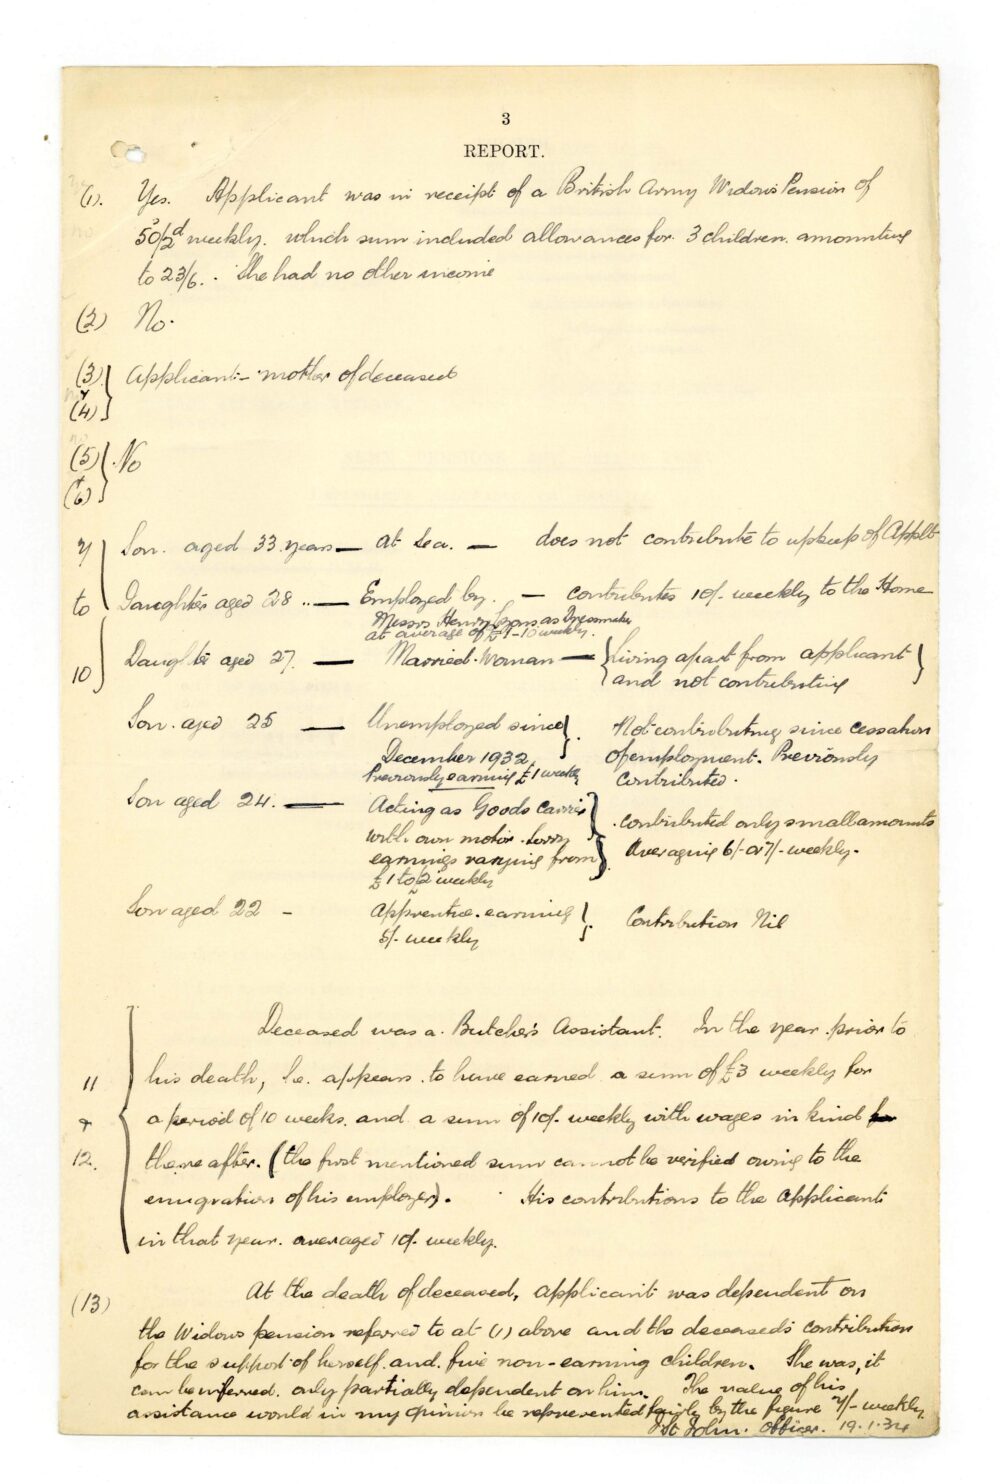 3
REPORT.
(1). Yes. Applicant was in receipt of a British Army Widows Pension of
50/2d weekly. which sum included allowances for 3 children. amounting
to 23/6. She had no other income
(2) No.
(3) & (4) Applicant - mother of deceased
(5) & (6) No
7 to 10 Son. aged 33 years — at Sea. — does not contribute to upkeep of Applt
Daughter aged 28 .. — Employed by. — contributes 10/- weekly to the Home
Messrs Henry Lyons as Dressmaker
at average of £1-10 weekly.
Daughter aged 27. — Married Woman — Living apart from applicant
and not contributing
Son. aged 25 — Unemployed since Not contributing since cessation
December 1932. of employment. Previously
Previously earning £1 weekly contributed.
Son aged 24. — Acting as Goods Carrier
with own motor lorry . contributed only small amounts
earnings varying from averaging 6/- or 7/- weekly.
£1 to £2 weekly
Son aged 22 - apprentice. earning Contribution Nil
5/- weekly
11 & 12. Deceased was a Butcher's Assistant. In the year prior to
his death, he appears to have earned a sum of £3 weekly for
a period of 10 weeks. and a sum of 10/- weekly with wages in kind
thereafter. (the first mentioned sum cannot be verified owing to the
emigration of his employer). His contributions to the applicant
in that year. averaged 10/- weekly.
(13) At the death of deceased, applicant was dependent on
the Widows pension referred to at (1) above and the deceased's contribution
for the support of herself. and. five non-earning children. She was, it
can be inferred. only partially dependent on him. The value of his
assistance would in my opinion be represented fairly by the figure 7/- weekly.
St John. Officer. 19.1.34